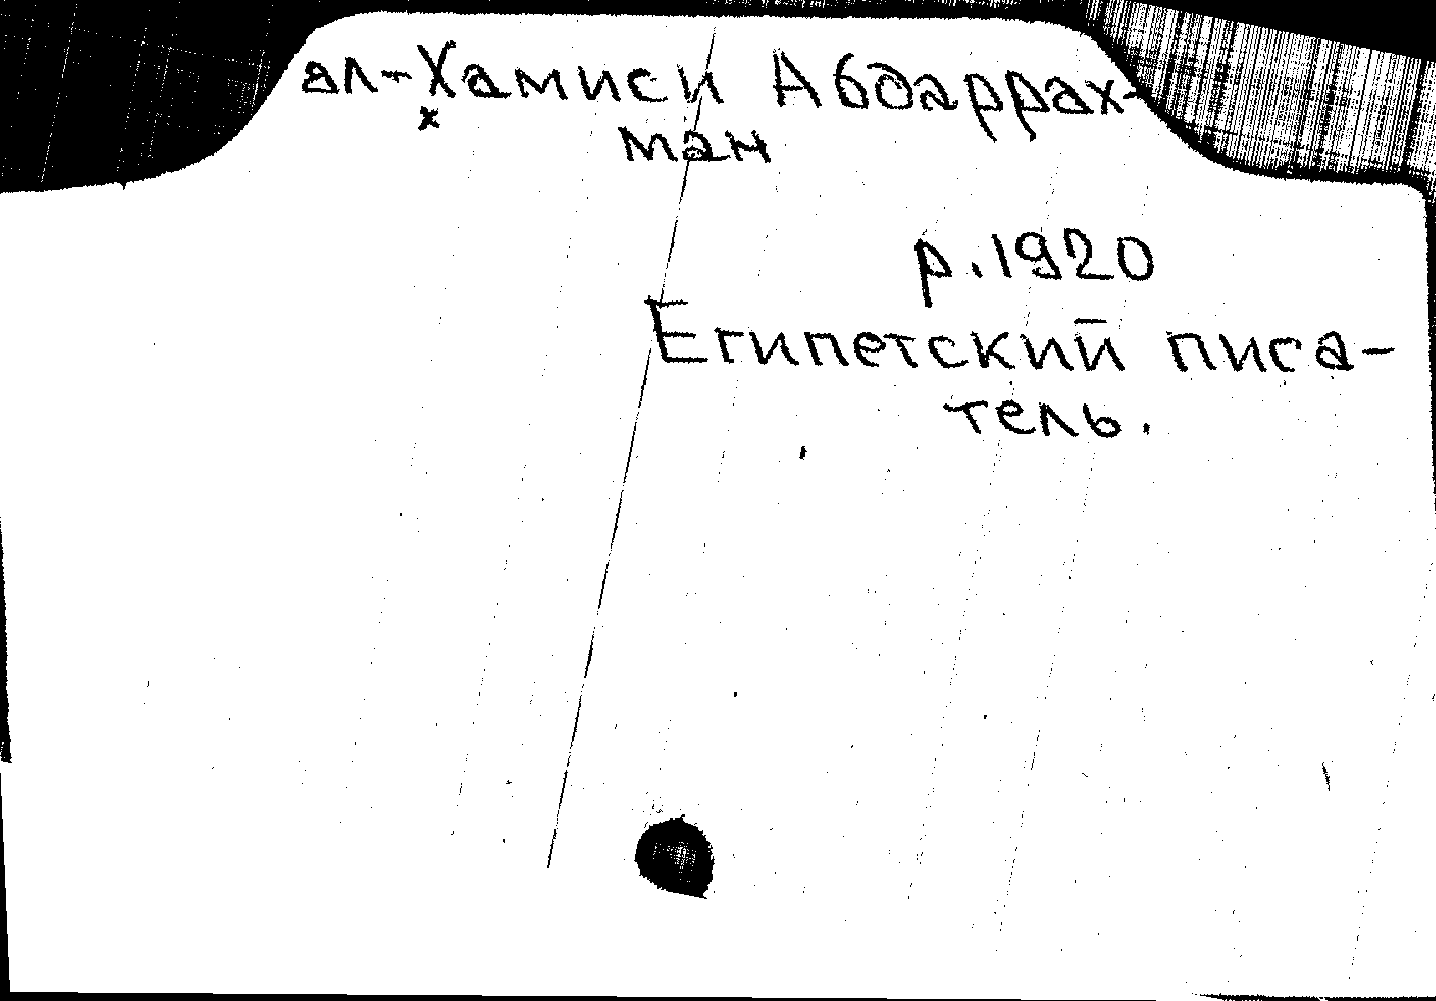 ал-Хамиси Абдаррах-
х
ман
р. 1920
Египетский писа-
тель.